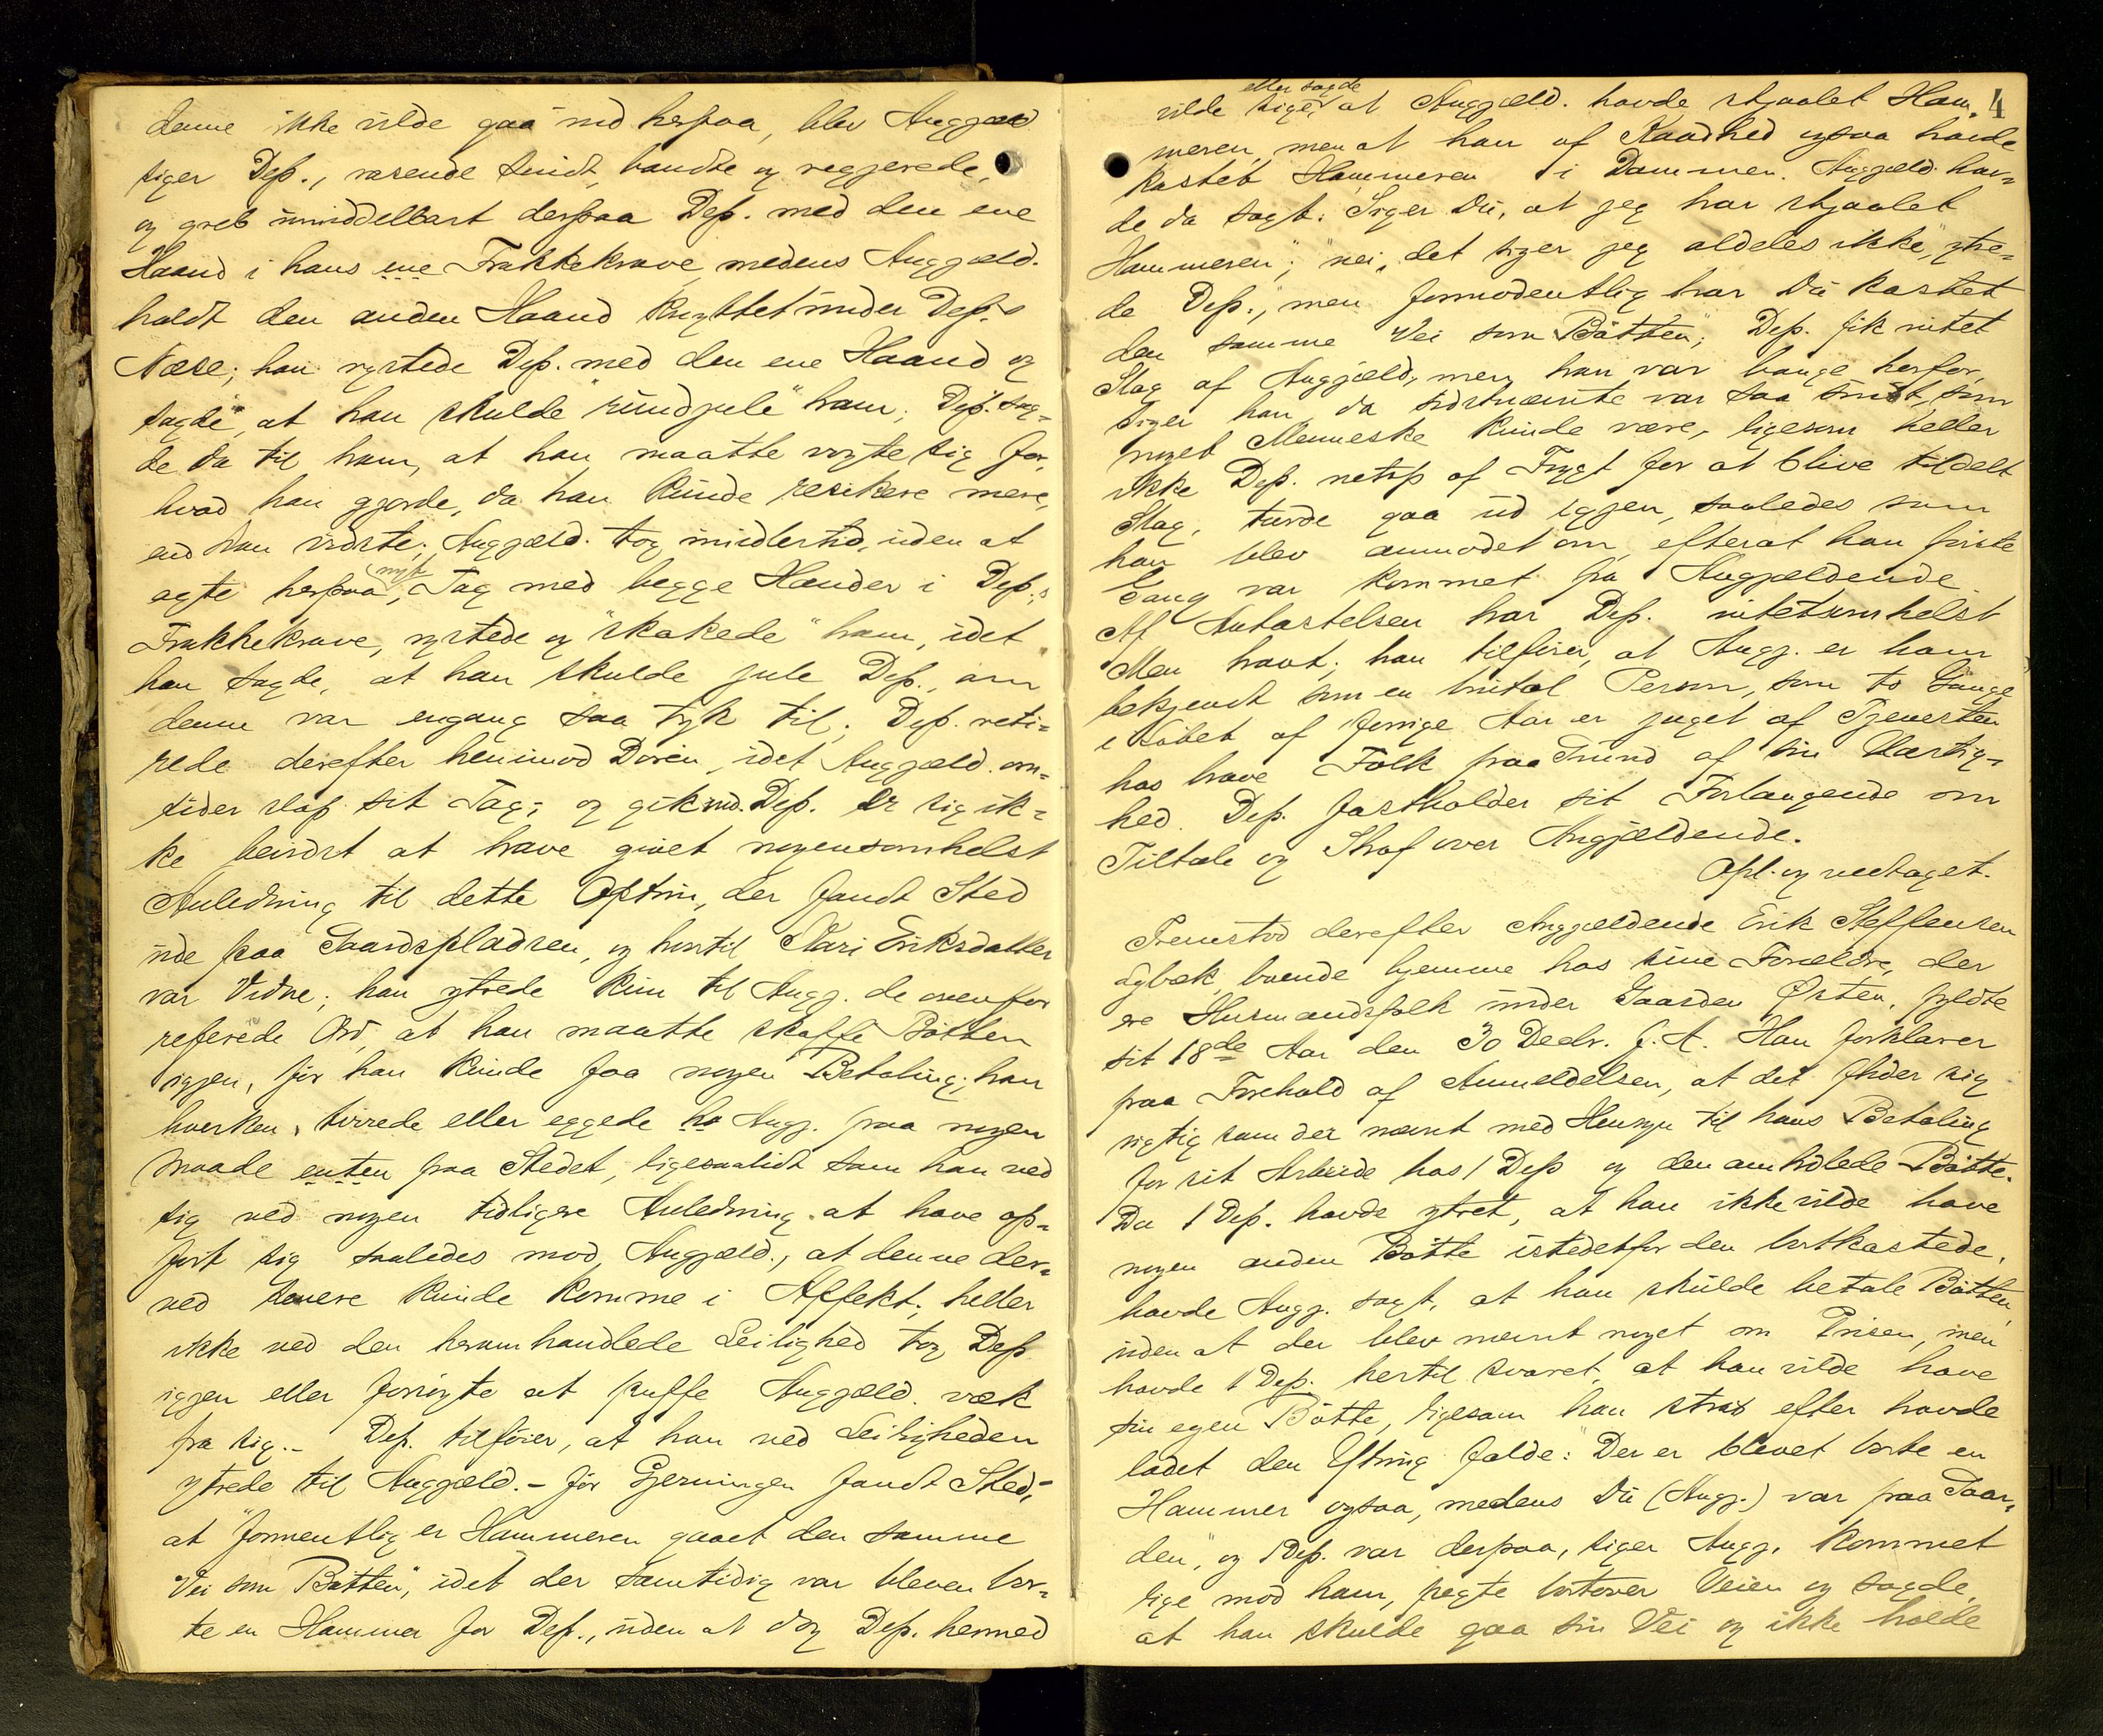 denne ikke vilde gaa ind herpaa, blev Anggjæld
siger Dep., rasende sindt, bandte og regjerede,
og greb umiddelbart derpaa Dep. med den ene
Haand i hans ene Frakkekrave, medens Anggjæld.
holdt den anden Haand knyttet under Dep.s
Næse; han rystede Dep. med den ene Haand og
sagde, at han skulde "rundjule" ham; Dep. sag-
de da til ham, at han maatte vogte sig for,
hvad han gjorde, da han kunde resikere mere,
end han vidste. Anggjæld. tog imidlertid, uden at
agte herpaa, nyt Tag med begge Hænder i Dep.s
Frakkekrave, rystede og "skakede" ham, idet
han sagde, at han skulde jule Dep., om
denne var engang saa tyk til. Dep. reti-
rede derefter henimod Døren, idet Anggjæld. om-
sider slap sit Tag, og gik ind. Dep. er sig ik-
ke bevidst at have givet nogensomhelst
Anledning til dette Optrin, der fandt Sted
ude paa Gaardspladsen, og hvortil Kari Eriksdatter
var Vidne; han ytrede kun til Angj. de ovenfor
referede Ord, at han maatte skaffe Bøtten
igjen, før han kunde faa nogen Betaling; han
hverken tirrede eller eggede ha Angj. paa nogen
Maade enten paa Stedet, ligesaalidt som han ved
sig ved nogen tidligere Anledning at have op-
ført sig saaledes mod Anggjæld., at denne der-
ved senere kunde komme i Affekt; heller
ikke ved den heromhandlede Leilighed tog Dep
igjen eller forsøgte at puffe Anggjæld. væk
fra sig.- Dep. tilføier, at han ved Leiligheden
ytrede til Anggjæld. - før Gjerningen fandt Sted,-
at "formentlig er Hammeren gaaet den samme
Vei som Bøtten", idet der samtidig var bleven bor-
te en Hammer for Dep., uden at dog Dep. hermed
4
eller sagde
vilde siger at Anggjæld. havde stjaalet Ham-
meren, men at han af Kaadhed ogsaa havde
kastet Hammeren i Dammen. Anggjæld. hav-
de da sagt: "Siger Du, at jeg har stjaalet
Hammeren"; "nei, det siger jeg aldeles ikke", ytre-
de Dep., "men formodentlig har Du kastet
den samme Vei som Bøtten"; Dep. fik intet
Slag af Anggjæld., men han var bange herfor,
siger han, da sidstnævnte var saa sindt, som
noget Menneske kunde være, ligesom heller
ikke Dep. netop af Frygt for at blive tildelt
Slag, turde gaa ud igjen, saaledes som
han blev anmodet om, efterat han første
Gang var kommet fra Anggjældende.
Af Antastelsen har Dep. intetsomhelst
Men havt; han tilføier, at Angj. er ham
bekjendt som en brutal Person, som to Gange
i Løbet af forrige Aar er jaget af Tjenesten
hos brave Folk paa Grund af sin Uartig-
hed. Dep. fastholder sit Forlangende om
Tiltale og Straf over Anggjældende.
Opl. og vedtaget.
Fremstod derefter Anggjældende Erik Steffensen
Agbæk, boende hjemme hos sine Forældre, der
ere Husmandsfolk under Gaarden Østen, fyldte
sit 18de Aar den 30 Decbr. f. A. Han forklarer
paa Forehold af Anmeldelsen, at det forholder sig
rigtig som der nævnt med Hensyn til hans Betaling
for sit Arbeide hos 1 Dep og den omhdlede Bøtte.
Da 1 Dep. havde ytret, at han ikke vilde have
nogen anden Bøtte istedetfor den bortkastede,
havde Angj. sagt, at han skulde betale Bøtten,
uden at der blev nævnt noget om Prisen, men
havde 1 Dep. hertil svaret, at han vilde have
sin egen Bøtte, ligesom han strax efter havde
ladet den Ytring falde: "Der er blevet borte en
Hammer ogsaa, medens Du (Angj.) var paa Gaar-
den", og 1 Dep. var derpaa, siger Angj. kommet
lige mod ham, pegte bortover Veien og sagde,
at han skulde gaa sin Vei og ikke holde